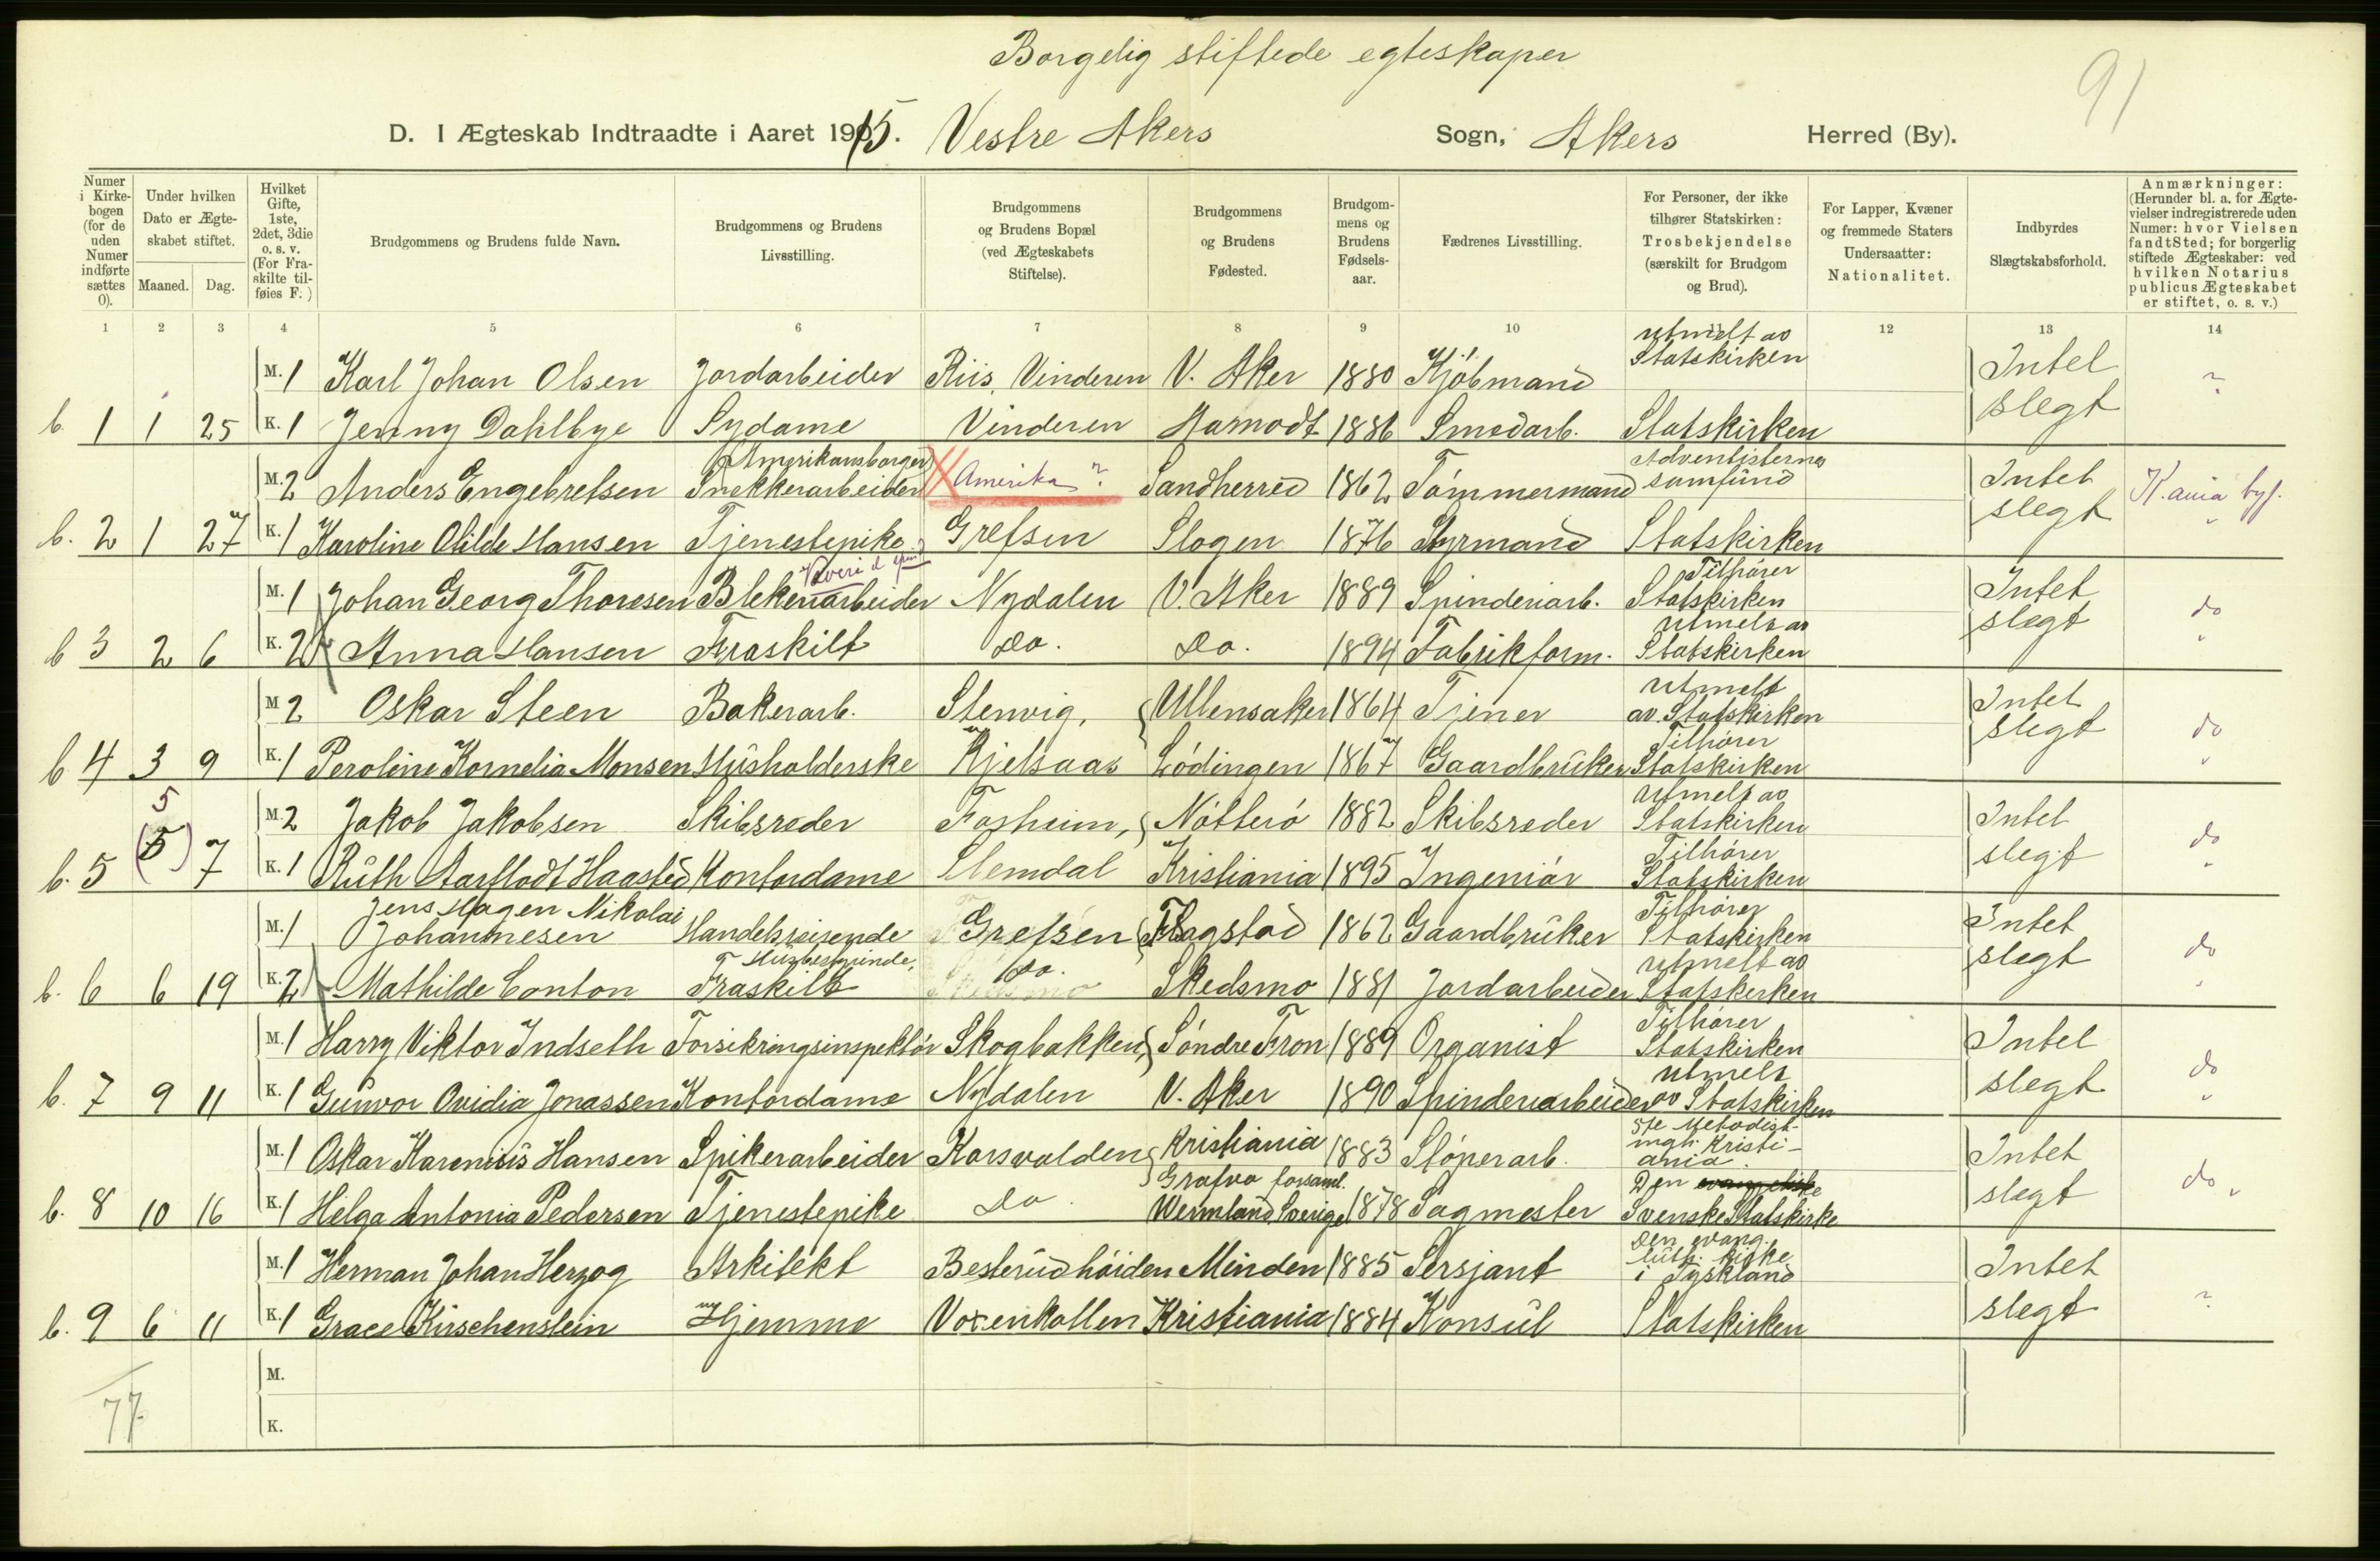 Borgelig stiftede egteskaper
91
D. I Ægteskab Indtraadte i Aaret 1915. Vestre Akers Sogn, Akers Herred (By).
Numer i Kirkebogen (for de uden Numer indførte sættes 0).
Under hvilken Dato er Ægteskabet stiftet.
Maaned. Dag.
Hvilket Gifte, 1ste, 2det, 3die o. s. v. (For Fraskilte tilføies F.)
Brudgommens og Brudens fulde Navn.
Brudgommens og Brudens Livsstilling.
Brudgommens og Brudens Bopæl (ved Ægteskabets Stiftelse).
Brudgommens og Brudens Fødested.
Brudgommens og Brudens Fødselsaar.
Fædrenes Livsstilling.
For Personer, der ikke tilhører Statskirken: Trosbekjendelse (særskilt for Brudgom og Brud).
For Lapper, Kvæner og fremmede Staters Undersaatter: Nationalitet.
Indbyrdes Slægtskabsforhold.
Anmærkninger: (Herunder bl. a. for Ægtevielser indregistrerede uden Numer: hvor Vielsen fandt Sted; for borgerlig stiftede Ægteskaber: ved hvilken Notarius publicus Ægteskabet er stiftet, o. s. v.)
1 2 3 4 5 6 7 8 9 10 11 12 13 14
M. 1 Karl Johan Olsen Jordarbeider Riis, Vinderen V. Aker 1880 Kjöbmand utmelt av Statskirken Intet ?
b. 1 1 25 K. 1 Jenny Dahlbye Sydame Vinderen 1886 Smedarb. Statskirken slegt
M. 2 Anders Engebretsen (Amerikansborger) Snekkerarbeider Amerika ? Sandherred 1862 Tömmermand Adventisternes samfund Intet K.ania byf.
b. 2 1 27 K. 1 Karoline Olilde Hansen Tjenestepike Grefsen Slagen 1876 Styrmand Statskirken slegt
M. 1 Johan Georg Thoresen Blekeriarbeider Nydalen V. Aker 1889 Spinderiarb. Tilhörer Statskirken Intet do
b 3 2 6 K. 2 Anna Hansen Fraskilt do. do. 1894 Fabrikform. utmelt av Statskirken slegt
M. 2 Oskar Steen Bakerarb. Stenvig, Ullensaker 1864 Tjener utmelt av Statskirken Intet do
b 4 3 9 K. 1 Peroline Kornelia Monsen Husholderske Kjelsaas Lödingen 1867 Gaardbruker Tilhörer Statskirken slegt
5
M. 2 Jakob Jakobsen Skibsreder Nötterö 1882 Skibsreder utmelt av Statskirken Intet do
b. 5 (5) 7 K. 1 Ruth Aarflodt Haasted Kontordame Slemdal Kristiania 1895 Ingeniör Tilhörer Statskirken slegt
M. 1 Jens Hagen Nikolai Johannesen Handelsreisende Grefsen Flagstad 1862 Gaardbruker Tilhörer Statskirken Intet do
b. 6 6 19 K. 2 Mathilde Conton Husbestyrinde, Fraskilt do. Skedsmo 1881 Jordarbeider utmelt av Statskirken slegt
M. 1 Harry Viktor Indseth Forsikringsinspektör Skogbakken, Söndre Fron 1889 Organist Tilhörer Statskirken Intet do
b. 7 9 11 K. 1 Gunvor Ovidia Jonassen Kontordame Nydalen V. Aker 1890 Spinderiarbeider utmelt av Statskirken slegt
M. 1 Oskar Karenius Hansen Spikerarbeider Korsvolden Kristiania 1883 Stöperarb. 5te Metodist- megh. Kristiania Intet do
b. 8 10 16 K. 1 Helga Antonia Pedersen Tjenestepike do Grafva forsaml. Wermland, Sverige 1878 Sagmester Den evangeliske Svenske Statskirke slegt
M. 1 Herman Johan Herzog Arkitekt Besterudhöiden Minden 1885 Sersjant Den evang. luth. kirke i Tyskland Intet ?
b. 9 6 11 K. 1 Grace Kirschenstein Hjemme Voxenkollen Kristiania 1884 Konsul Statskirken slegt
M.
77
K.